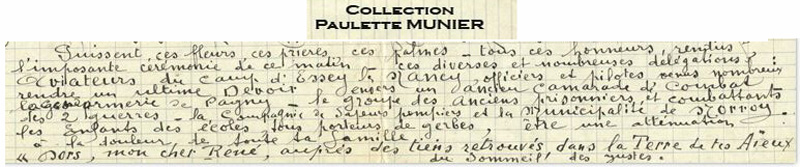 Collection
Paulette MUNIER
Puissent ces fleurs ces prières, ces palmes - tous ces honneurs, rendus,
l'imposante cérémonie de ce matin ces diverses et nombreuses délégations :
Aviateurs du camp d'Essey les Nancy, officiers et pilotes venus nombreux
rendre un ultime Devoir envers un ancien camarade de Combat
la gendarmerie de Pagny - le groupe des anciens prisonniers et combattants
des 2 guerres - la Compagnie de sapeurs pompiers et la Municipalité de Norroy -
les enfants des écoles tous porteurs de gerbes, être une atténuation
à la douleur de toute famille
" Dors, mon cher René, auprès des tiens retrouvés dans la Terre de tes Aïeux
du Sommeil des Justes.